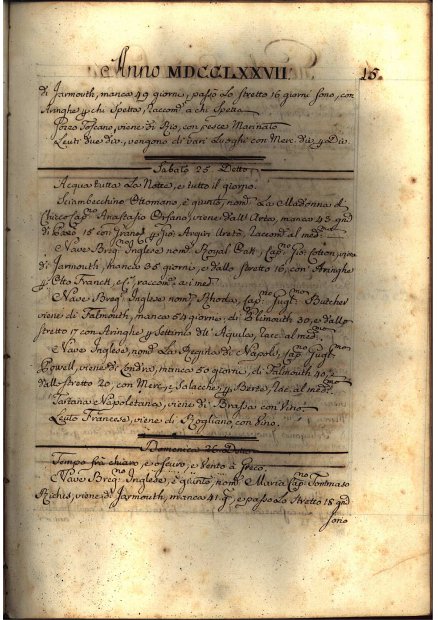 Anno MDCCLXXVII. 15.
di Jarmouth, manca 49 giorni, passò Lo stretto 16 giorni sono, con
Aringhe p chi Spetta, raccom.º à chi Spetta
Porco Toscano, viene di Rio, con pesce Marinato
Leuti due div., vengono di vari Luoghi con Merc. div. p Div.
Sabato 25. Detto
Acqua tutta La Notte, e tutto il giorno.
Sciambecchino Ottomano, è giunto, nom. La Madonna d
Checco Cap.no Anastasio Orfano, viene dall' Arta, manca 43. gni
di Paxò 15 con grano p Gio: Argiri Aretà, raccom.al med.mo
Nave Breq.no Inglese nom. Royal Oak, Cap.no Gio: Cotton, viene
di Jarmouth, manca 36 giorni, e dallo stretto 16, con Aringhe
p Otto Franck, e C. raccom. a i med.
Nave Breq. Inglese nom. Rhoda, Cap.no Gugl.mo Butcher
viene di Falmouth, manca 54 giorni, di Plimouth 30, e dallo
stretto 17 con Aringhe p Settimo dll' Aquila, rac. al med.mo
Nave Inglese, nom. La Regina di Napoli, Cap.no Gugl.mo
Powell, viene di Londra, manca 50 giorni, di Falmouth 40, e
dallo stretto 20, con Merc., e Salacche p Berte, rac. al med.mo
Tartana Napoletana, viene di Braffa con Vino
Leuto Francese, viene di Rogliano, con Vino.
Domenica 26. Detto
Tempo frà chiaro, e oscuro, e Vento à Greco.
Nave Breq.no Inglese, è giunto, nom. Maria Cap.no Tommaso
Richis, viene di Jarmouth, manca 41. e passò Lo stretto 18 gni
sono